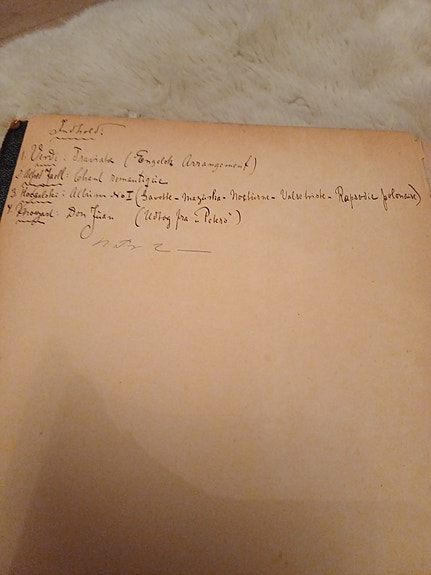 Indhold:
1. Verdi: Traviata (Engelsk Arrangement)
2. Alfred Jaell: Chant romantique
3. Koczalski: Album No I (Gavotte - Mazurka - Nocturne - Valse triste - Rapsodie polonaise)
4. Mozart: Don Juan (Udtog fra "Peters")